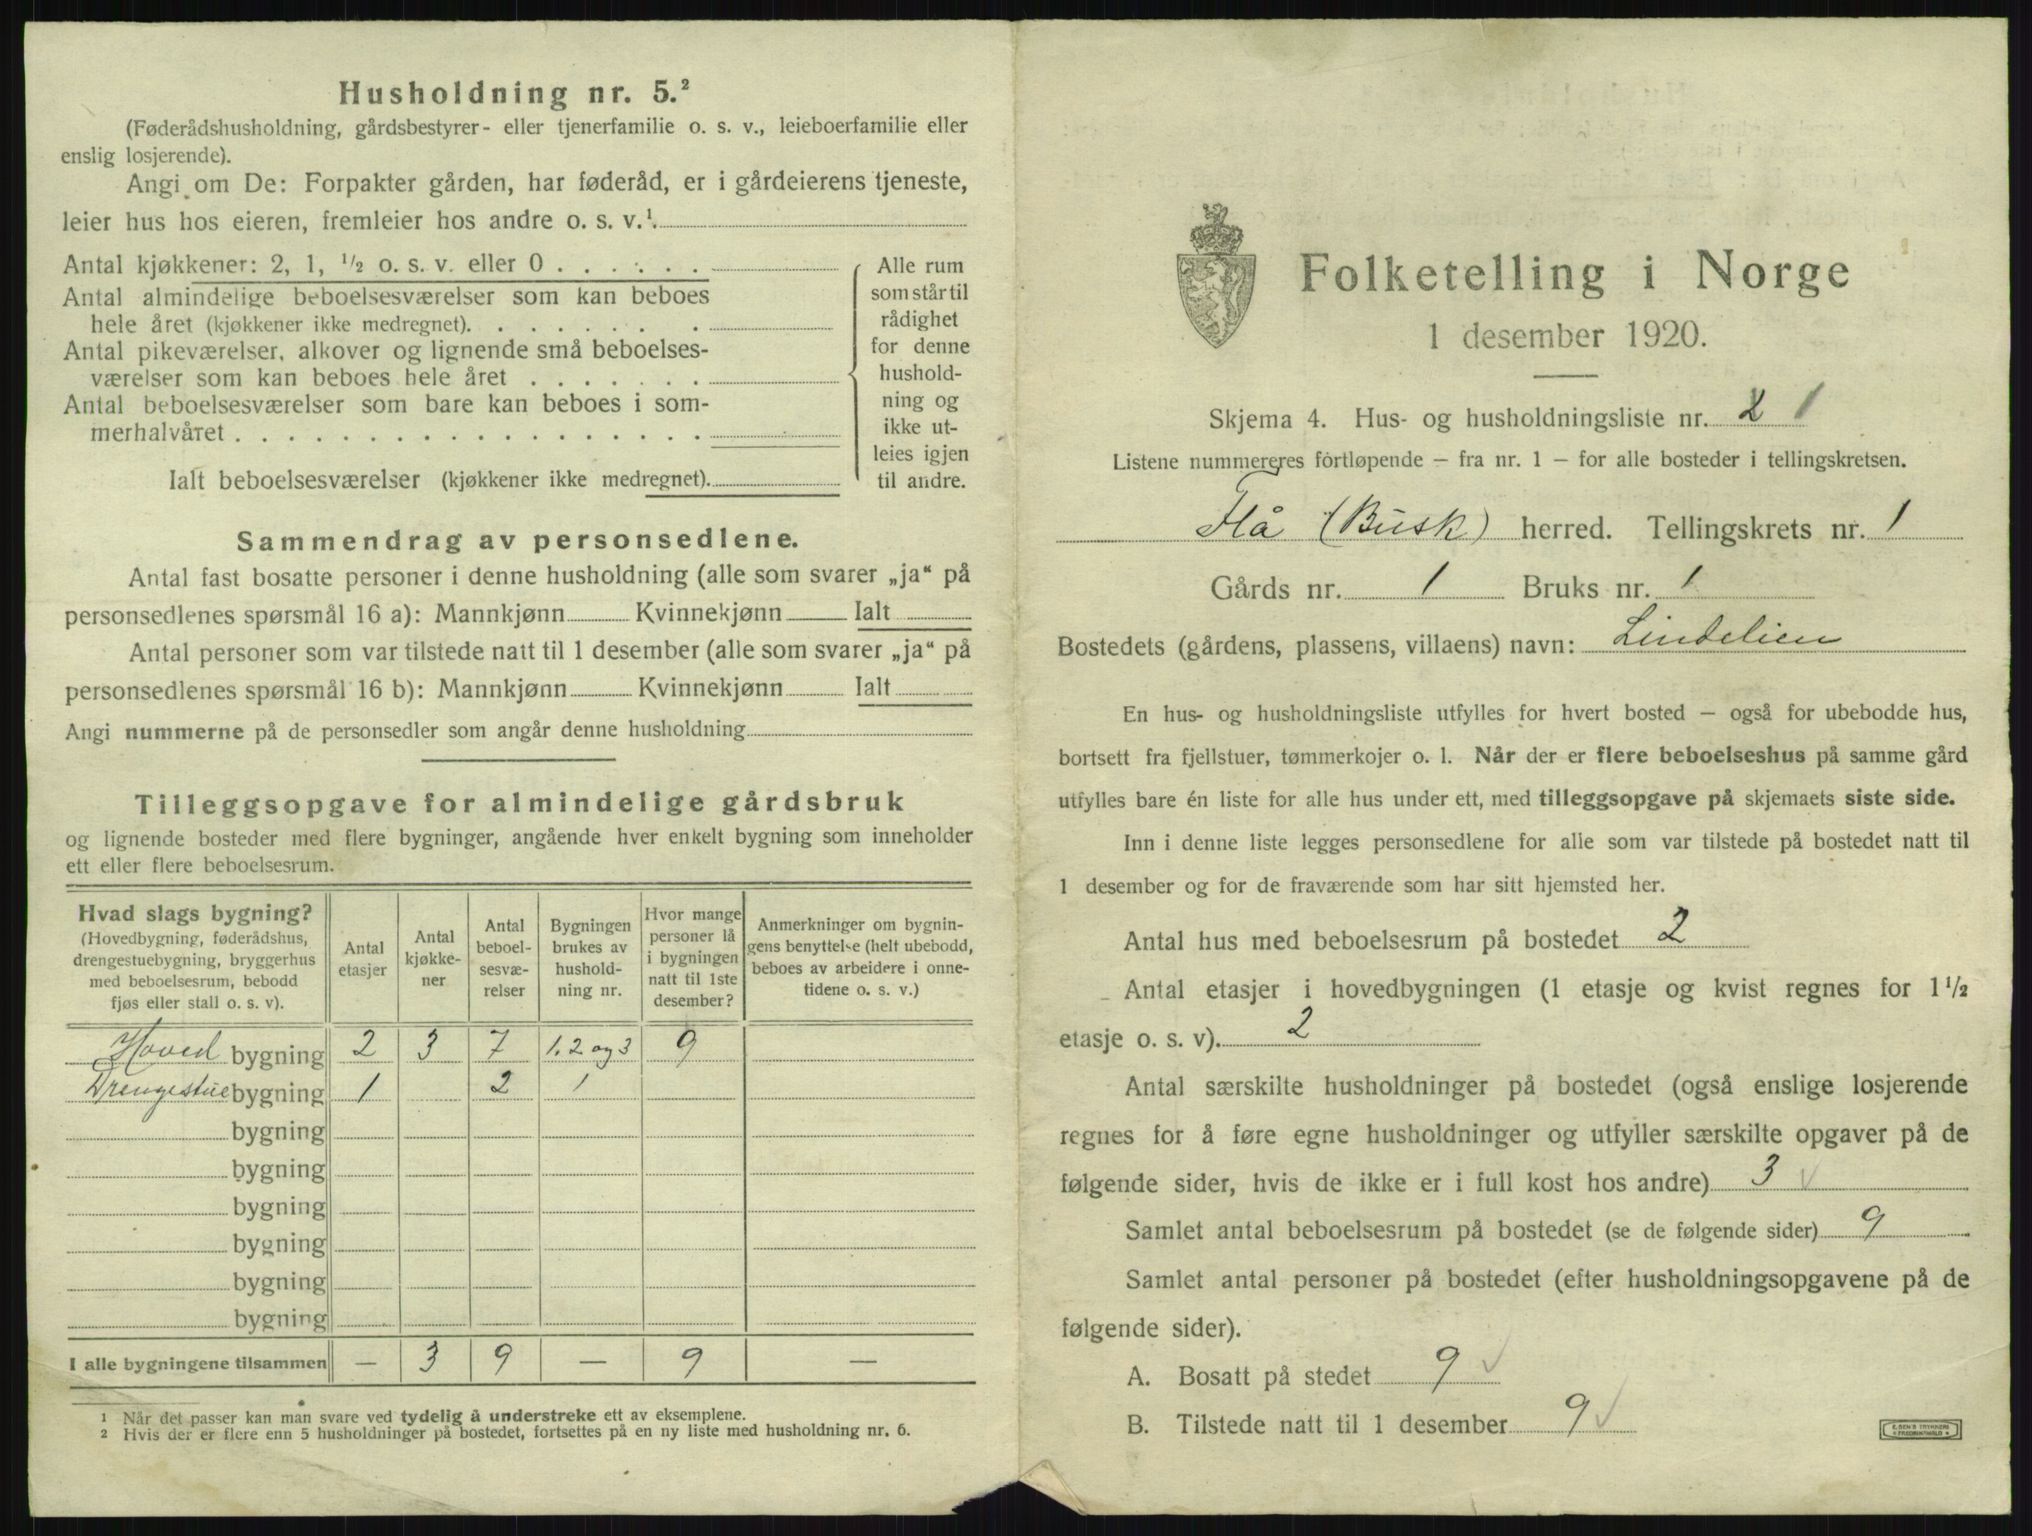 Husholdning nr. 5.²
(Føderådshusholdning, gårdsbestyrer- eller tjenerfamilie o. s. v., leieboerfamilie eller
enslig losjerende).
Angi om De: Forpakter gården, har føderåd, er i gårdeierens tjeneste,
leier hus hos eieren, fremleier hos andre o. s. v.¹
Antal kjøkkener: 2, 1, ½ o. s. v. eller 0
Antal almindelige beboelsesværelser som kan beboes
hele året (kjøkkener ikke medregnet).
Antal pikeværelser, alkover og lignende små beboelses-
værelser som kan beboes hele året
Antal beboelsesværelser som bare kan beboes i som-
merhalvåret
Alle rum
som står til
rådighet
for denne
hushold-
ning og
ikke ut-
leies igjen
til andre.
Ialt beboelsesværelser (kjøkkener ikke medregnet).
Sammendrag av personsedlene.
Antal fast bosatte personer i denne husholdning (alle som svarer „ja“ på
personsedlenes spørsmål 16 a): Mannkjønn Kvinnekjønn Ialt
Antal personer som var tilstede natt til 1 desember (alle som svarer „ja“ på
personsedlenes spørsmål 16 b): Mannkjønn Kvinnekjønn Ialt
Angi nummerne på de personsedler som angår denne husholdning
Tilleggsopgave for almindelige gårdsbruk
og lignende bosteder med flere bygninger, angående hver enkelt bygning som inneholder
ett eller flere beboelsesrum.
Hvad slags bygning?
(Hovedbygning, føderådshus,
drengestuebygning, bryggerhus
med beboelsesrum, bebodd
fjøs eller stall o. s. v).
Antal
etasjer
Antal
kjøkke-
ner
Antal
beboel-
sesvæ-
relser
Bygningen
brukes av
hushold-
ning nr.
Hvor mange
personer lå
i bygningen
natt til 1ste
desember?
Anmerkninger om bygnin-
gens benyttelse (helt ubebodd,
beboes av arbeidere i onne-
tidene o. s. v.)
Hoved bygning 2 3 7 1. 2 og 3 9
Drengestue bygning 1 2 1
bygning
bygning
bygning
bygning
bygning
bygning
I alle bygningene tilsammen — 3 9 — 9 —
¹ Når det passer kan man svare ved tydelig å understreke ett av eksemplene.
² Hvis der er flere enn 5 husholdninger på bostedet, fortsettes på en ny liste med husholdning nr. 6.
Folketelling i Norge
1 desember 1920.
Skjema 4. Hus- og husholdningsliste nr. 2 1
Listene nummereres fortløpende – fra nr. 1 – for alle bosteder i tellingskretsen.
Flå (Busk) herred. Tellingskrets nr. 1
Gårds nr. 1 Bruks nr. 1
Bostedets (gårdens, plassens, villaens) navn: Lindelien
En hus- og husholdningsliste utfylles for hvert bosted – også for ubebodde hus,
bortsett fra fjellstuer, tømmerkojer o. l. Når der er flere beboelseshus på samme gård
utfylles bare én liste for alle hus under ett, med tilleggsopgave på skjemaets siste side.
Inn i denne liste legges personsedlene for alle som var tilstede på bostedet natt til
1 desember og for de fraværende som har sitt hjemsted her.
Antal hus med beboelsesrum på bostedet 2
Antal etasjer i hovedbygningen (1 etasje og kvist regnes for 1½
etasje o. s. v). 2
Antal særskilte husholdninger på bostedet (også enslige losjerende
regnes for å føre egne husholdninger og utfyller særskilte opgaver på de
følgende sider, hvis de ikke er i full kost hos andre) 3 ✓
Samlet antal beboelsesrum på bostedet (se de følgende sider) 9
Samlet antal personer på bostedet (efter husholdningsopgavene på de
følgende sider).
A. Bosatt på stedet 9 ✓
B. Tilstede natt til 1 desember 9 ✓